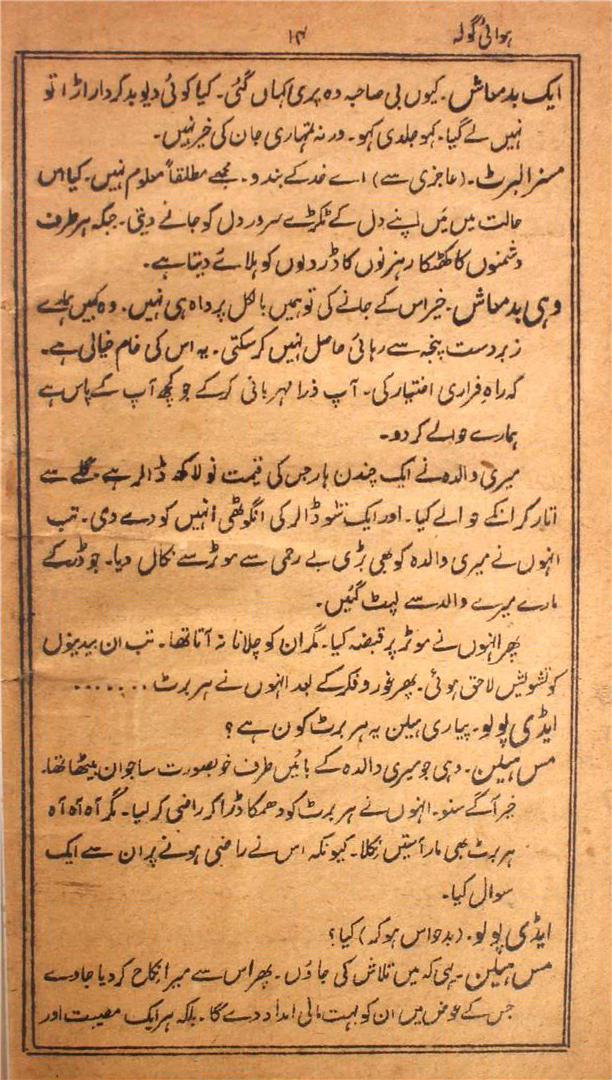 ہوائی گولہ ۱۴
ایک بدمعاش۔ کیوں بی صاحبہ وہ پری کہاں گئی۔ کیا کوئی دیو بدکردار اڑا تو
نہیں لے گیا۔ کہو جلدی کہو۔ ورنہ تمہاری جان کی خیر نہیں۔
مسز البرٹ۔ (عاجزی سے) اے خدا کے بندو۔ مجھے مطلقاً معلوم نہیں۔ کیا اس
حالت میں میں اپنے دل کے ٹکڑے سرور دل کو جانے دیتی۔ جبکہ ہر طرف
دشمنوں کا کھٹکا رہزنوں کا ڈر دلوں کو ہلائے دیتا ہے۔
وہی بدمعاش۔ خیر اس کے جانے کی تو ہمیں بالکل پرواہ ہی نہیں۔ وہ کہیں ہمارے
زبردست پنجہ سے رہائی حاصل نہیں کر سکتی۔ یہ اس کی خام خیالی ہے۔
کہ راہ فراری اختیار کی۔ آپ ذرا مہربانی کر کے جو کچھ آپ کے پاس ہے
ہمارے حوالے کر دو۔
میری والدہ نے ایک چندن ہار جس کی قیمت نو لاکھ ڈالر ہے گلے سے
اتار کر انکے حوالے کیا۔ اور ایک سو ڈالر کی انگوٹھی انہیں کو دے دی۔ تب
انہوں نے میری والدہ کو بھی بڑی بے رحمی سے موٹر سے نکال دیا۔ جو ڈر کے
مارے میرے والد سے لپٹ گئیں۔
پھر انہوں نے موٹر پر قبضہ کیا۔ مگر ان کو چلانا نہ آتا تھا۔ تب ان بیدینوں
کو تشویش لاحق ہوئی۔ پھر غور و فکر کے بعد انہوں نے ہربرٹ .......
ایڈی پولو۔ پیاری ہیلن یہ ہربرٹ کون ہے؟
مس ہیلن۔ وہی جو میری والدہ کے بائیں طرف خوبصورت سا جوان بیٹھا تھا۔
خیر آگے سنو۔ انہوں نے ہربرٹ کو دھمکا ڈرا کر راضی کر لیا۔ مگر آہ آہ آہ
ہربرٹ بھی مار آستیں نکلا۔ کیونکہ اس نے راضی ہونے پر ان سے ایک
سوال کیا۔
ایڈی پولو۔ (بدحواس ہو کر) کیا؟
مس ہیلن۔ یہی کہ میں تلاش کی جاؤں۔ پھر اس سے میرا نکاح کر دیا جاوے
جس کے عوض میں ان کو بہت مالی امداد دے گا۔ بلکہ ہر ایک مصیبت اور